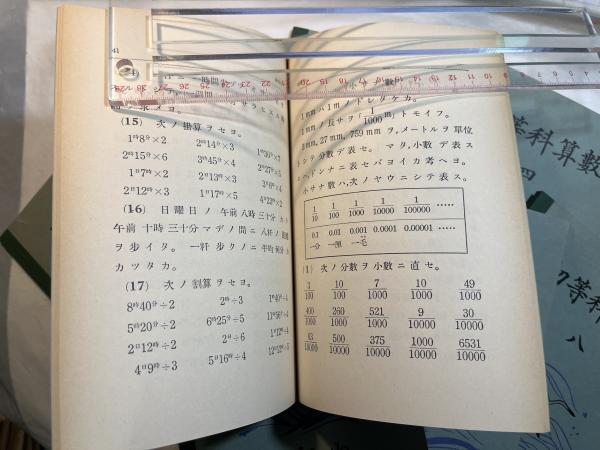 (15) 次ノ掛算ヲセヨ。
1時8分×2 2時14分×3 1時30分×7
2時15分×6 3時45分×4 2日27時×5
1日7時×2 2日13時×3 3日6時×4
2日12時×3 1日17時×5 4日23時×2
(16) 日曜日ノ午前八時三十分カラ
午前十時三十分マデノ間ニ
ヲ歩イタ。一粁歩クノニ平均何分
カツタカ。
(17) 次ノ割算ヲセヨ。
8時40分÷2 2時÷3 1時40分÷4
5時20分÷2 6時25分÷5 11時56分÷4
2日12時÷2 2日÷6 1日12時÷4
4日9時÷3 5日16時÷4 12日12時÷5
1mmハ1mノドレダケカ。
1mmノ長サヲ 1/1000 m, トモイフ。
3mm, 27mm, 759mm ヲ, メートルヲ單位
トシテ分數デ表セ。マタ, 小數デ表ス
ニハ, ドンナニ表セバヨイカ考ヘヨ。
小サナ數ハ, 次ノヤウニシテ表ス。
1/10 1/100 1/1000 1/10000 1/100000 ……
0.1 0.01 0.001 0.0001 0.00001 ……
一分 一厘 一毛
(1) 次ノ分數ヲ小數ニ直セ。
3/100 10/100 7/1000 10/1000 49/1000
400/1000 260/1000 521/1000 9/10000 30/10000
43/10000 500/10000 375/10000 1000/10000 6531/10000
等科算數
四
等科
八